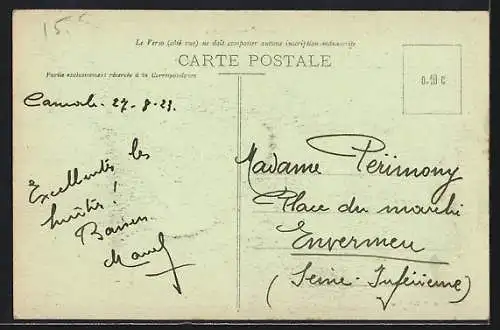 15.
Le Verso (côté vue) ne doit comporter aucune inscription manuscrite
CARTE POSTALE
Partie exclusivement réservée à la Correspondance
0.10 c
27-8-23.
Excellentes les
huîtres!
Marcel
Madame Périmony
Place du marché
Envermeu
(Seine-Inférieure)